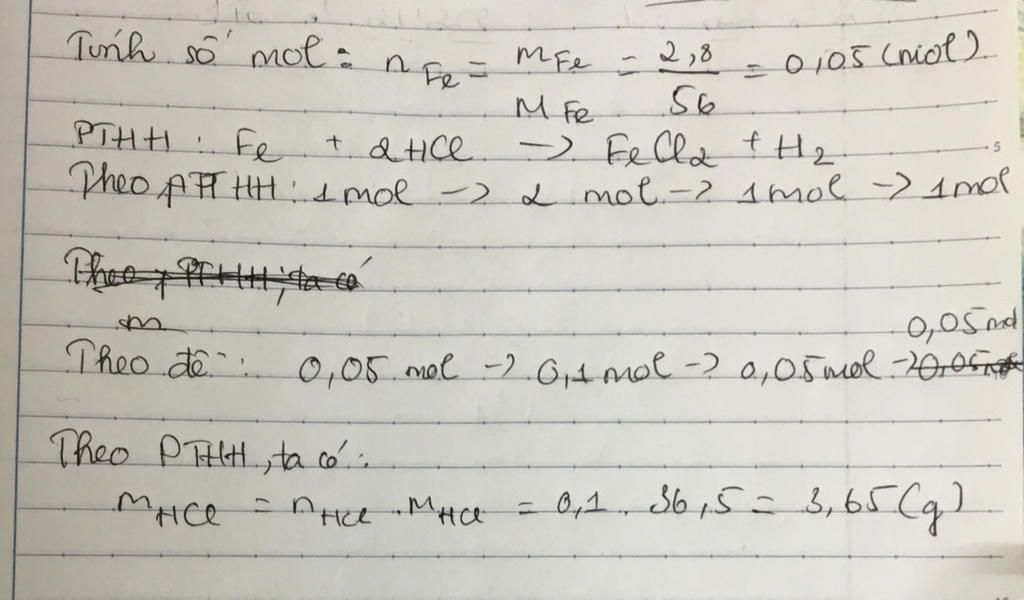 Tính số mol: n Fe = m Fe / M Fe = 2,8 / 56 = 0,05 (mol).
PTHH: Fe + 2HCl -> FeCl2 + H2
Theo PTHH: 1 mol -> 2 mol -> 1 mol -> 1 mol
Theo PTHH, ta có
m
0,05 mol
Theo đề: 0,05 mol -> 0,1 mol -> 0,05 mol -> 0,05 mol
Theo PTHH, ta có:
mHCl = nHCl . MHCl = 0,1 . 36,5 = 3,65 (g)